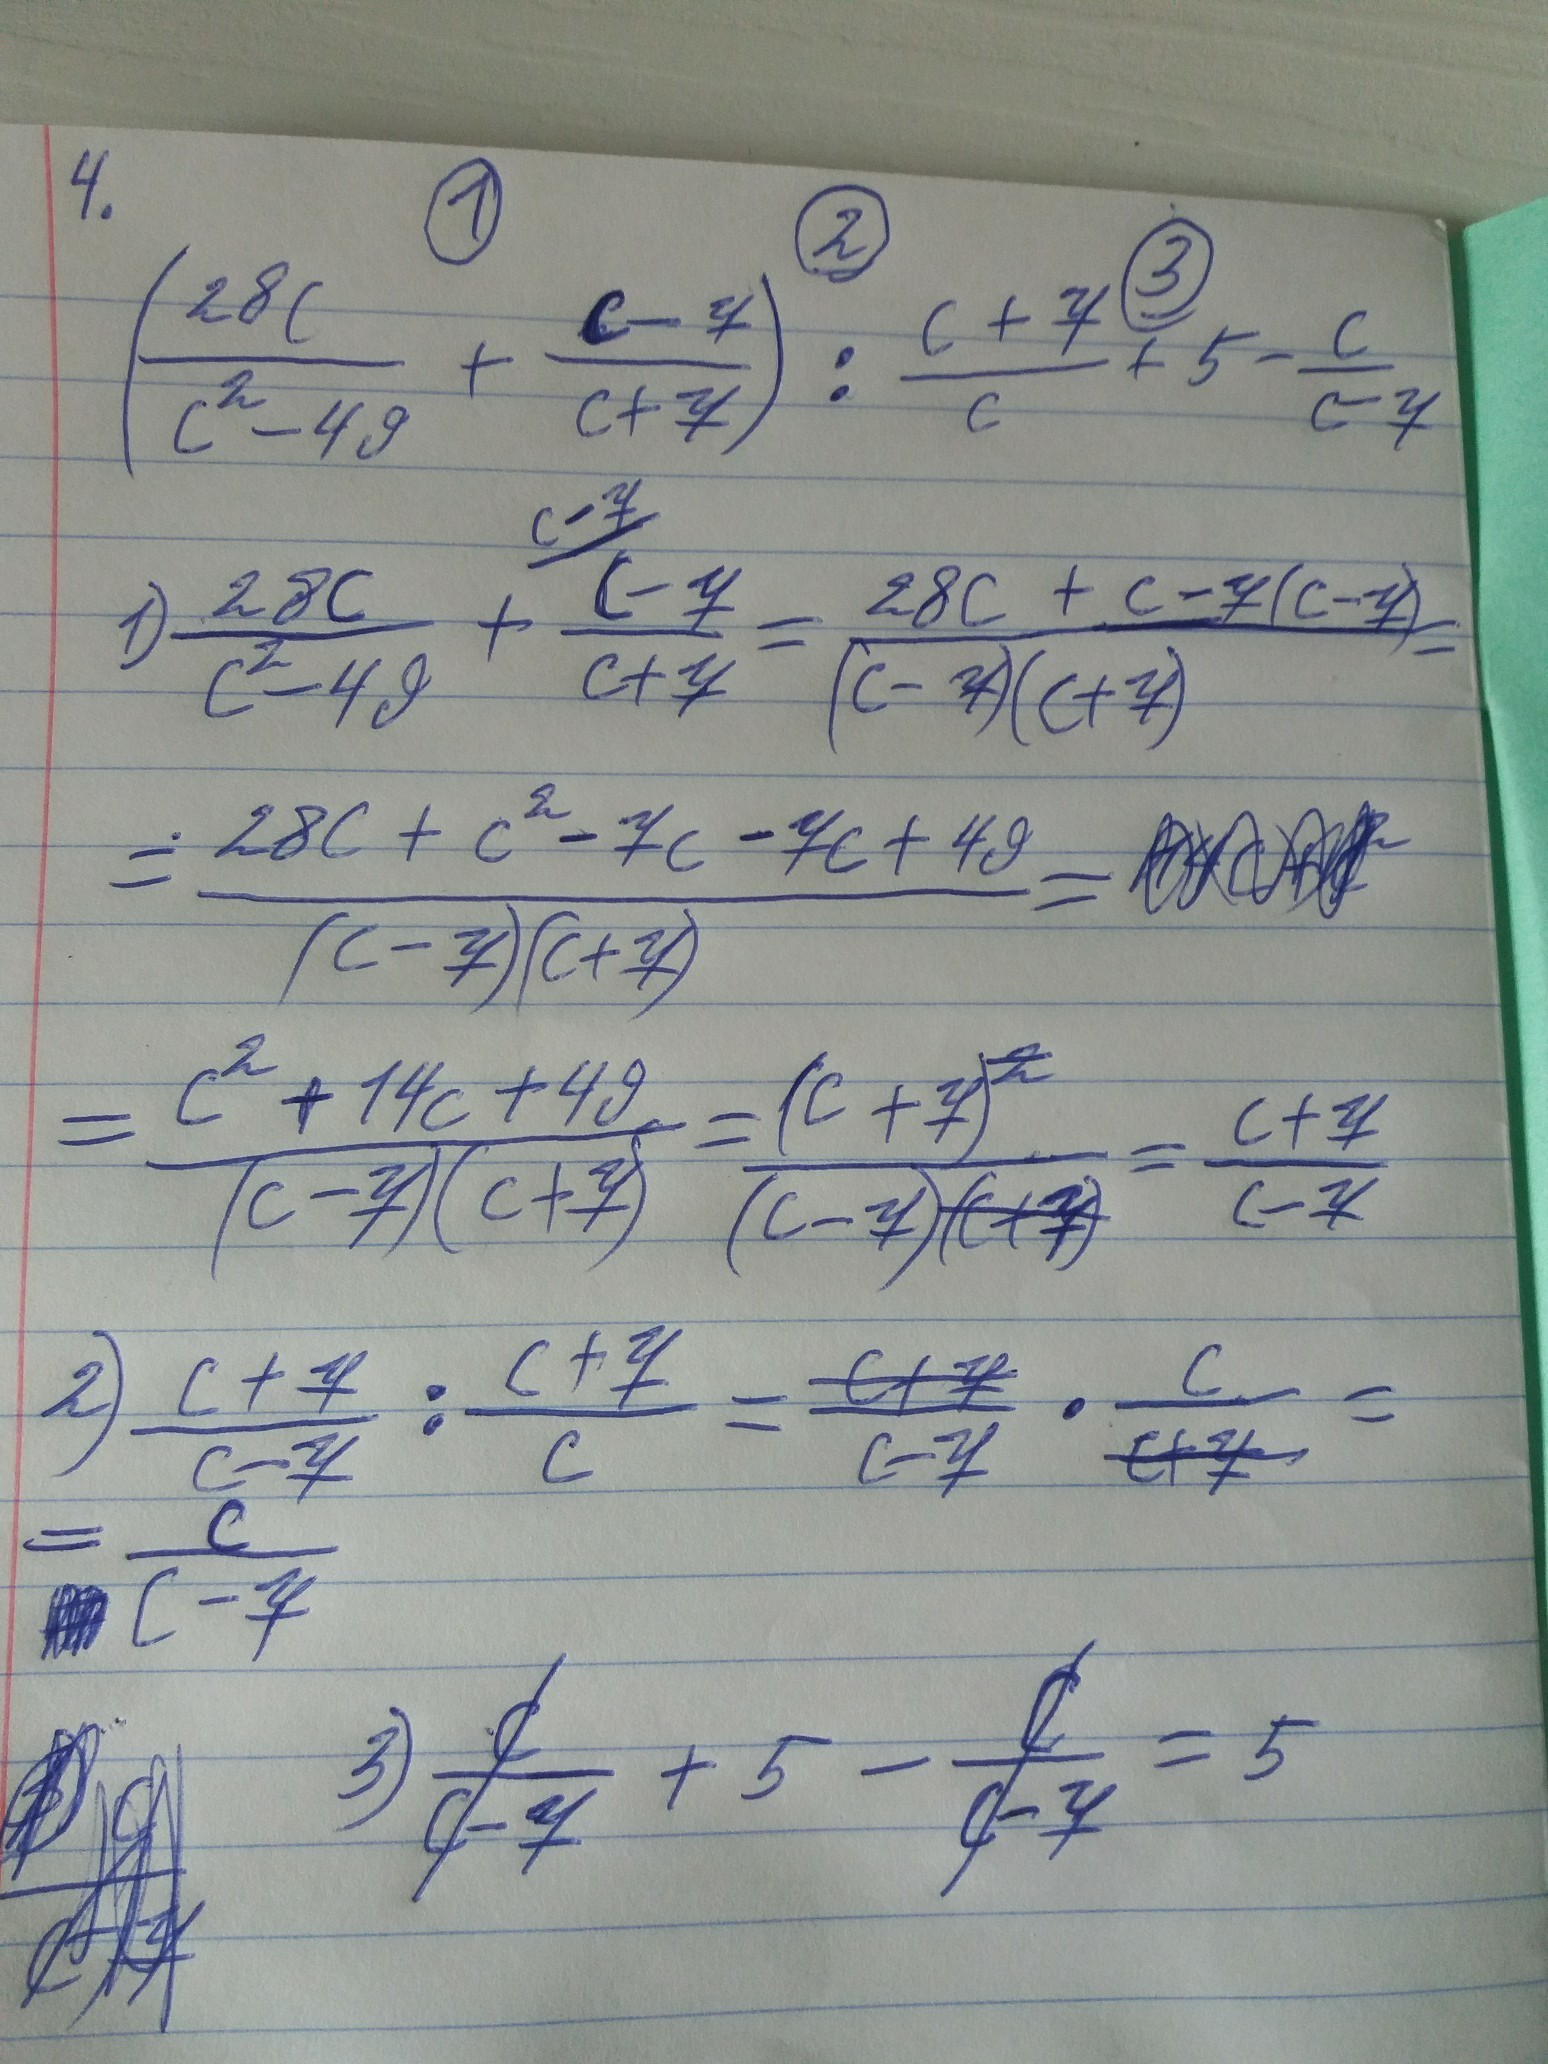 4.
① ② ③
(28c/(c²-49) + (c-7)/(c+7)) : (c+7)/c + 5 - c/(c-7)
c-7
1) 28c/(c²-49) + (c-7)/(c+7) = (28c + c-7(c-7))/((c-7)(c+7)) =
= (28c + c² - 7c - 7c + 49)/((c-7)(c+7)) =
= (c² + 14c + 49)/((c-7)(c+7)) = (c+7)²/((c-7)(c+7)) = (c+7)/(c-7)
2) (c+7)/(c-7) : (c+7)/c = (c+7)/(c-7) · c/(c+7) =
= c/(c-7)
3) c/(c-7) + 5 - c/(c-7) = 5